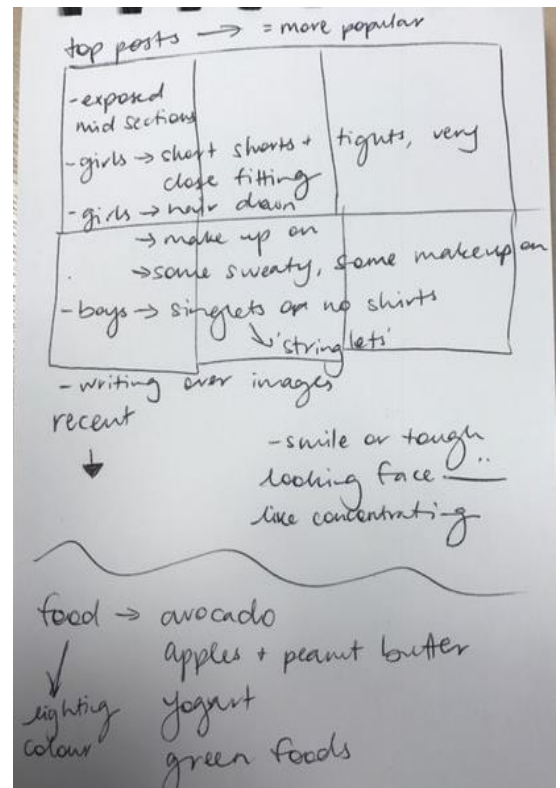 top posts → = more popular
-exposed
mid sections
-girls → short shorts + tights, very
close fitting
-girls → hair down
→ make up on
→ some sweaty, some makeup on
-boys → singlets or no shirts
↘ 'stringlets'
-writing over images
recent
↓
-smile or tough
looking face
like concentrating
food → avocado
apples + peanut butter
↓
lighting yogurt
colour
green foods